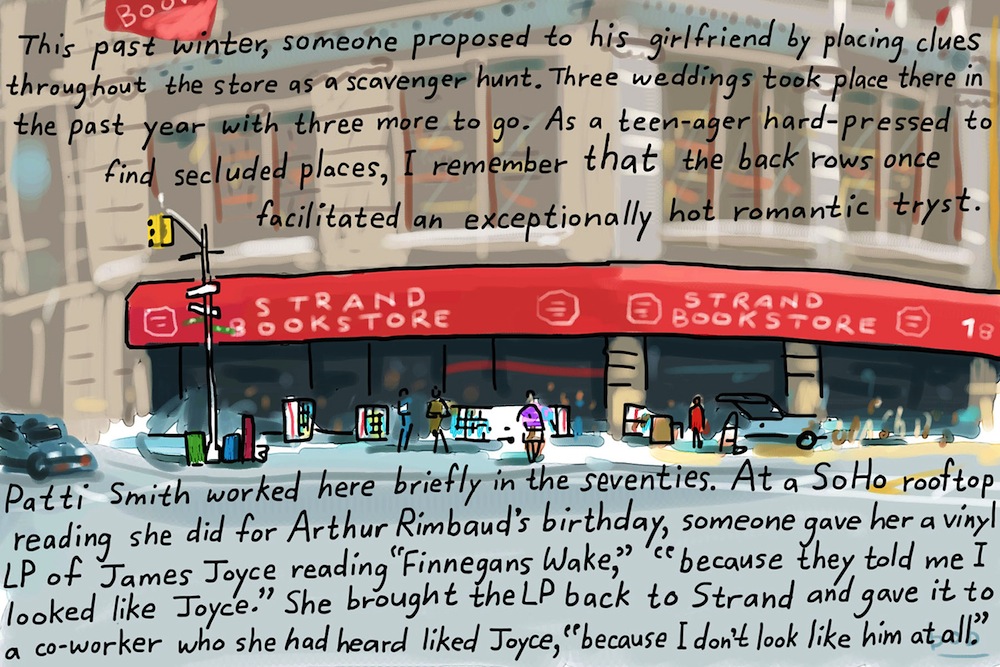 BOO
This past winter, someone proposed to his girlfriend by placing clues
throughout the store as a scavenger hunt. Three weddings took place there in
the past year with three more to go. As a teen-ager hard-pressed to
find secluded places, I remember that the back rows once
facilitated an exceptionally hot romantic tryst.
STRAND
BOOKSTORE
STRAND
BOOKSTORE
18
Patti Smith worked here briefly in the seventies. At a SoHo rooftop
reading she did for Arthur Rimbaud's birthday, someone gave her a vinyl
LP of James Joyce reading “Finnegans Wake,” “because they told me I
looked like Joyce.” She brought the LP back to Strand and gave it to
a co-worker who she had heard liked Joyce, “because I don't look like him at all.”